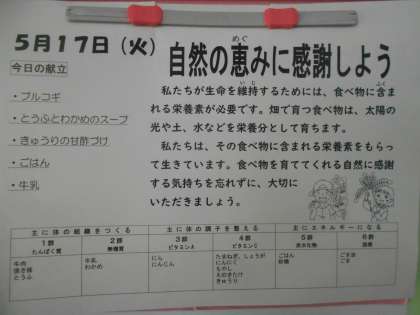 5月17日（火）
自然の恵みに感謝しよう
めぐ
今日の献立
・プルコギ
・とうふとわかめのスープ
・きゅうりの甘酢づけ
・ごはん
・牛乳
私たちが生命を維持するためには、食べ物に含ま
れる栄養素が必要です。畑で育つ食べ物は、太陽の
光や土、水などを栄養分として育ちます。
私たちは、その食べ物に含まれる栄養素をもらっ
て生きています。食べ物を育ててくれる自然に感謝
する気持ちを忘れずに、大切に
いただきましょう。
主に体の組織をつくる 主に体の調子を整える 主にエネルギーになる
1群 2群 3群 4群 5群 6群
たんぱく質 無機質 ビタミンA ビタミンC 炭水化物 脂質
牛肉 牛乳 にら たまねぎ、しょうが ごはん ごま油
わかめ にんじん にんにく 砂糖 ごま
とうふ もやし
えのきたけ
きゅうり